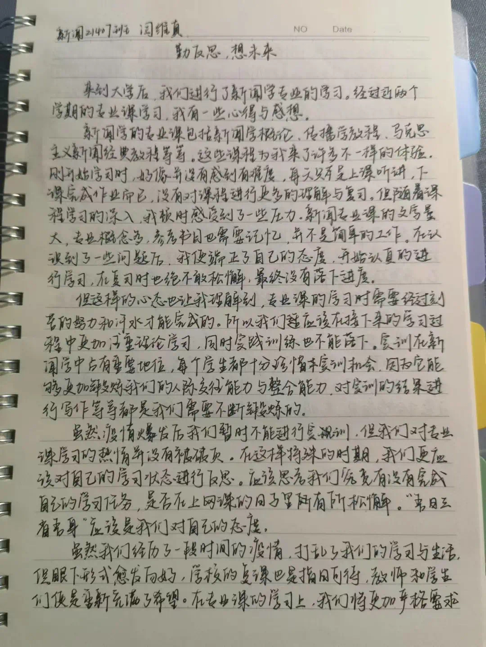 新闻2140729邵 闫维真
NO Date
勤反思,想未来
来到大学后,我们进行了新闻学专业的学习。经过近两个
学期的专业课学习,我有一些心得与感想。
新闻学的专业课包括新闻学概论、传播学教程、马克思
主义新闻经典教程等等。这些课程为我来了许多不一样的体验。
刚开始学习时,好像并没有感到有难度,每天只不是上课听讲,下
课完成作业而已,没有对课程进行更多的理解与复习。但随着课
程学习的深入,我极时感受到了一些压力。新闻专业课的文学量
大,专业概念多,参考书目也需要记忆,并不是简单的工作。在认
识到了一些问题后,我便端正了自己的态度,开始认真的进
行学习,在复习时也绝不敢松懈,最终没有落下进度。
但这样的心态也让我理解到,专业课的学习时需要经过刻
苦的努力和汗水才能完成的。所以我们应该在接下来的学习过
程中更加注重理论学习,同时实践训练也不能落下。实训在新
闻学中占有重要地位,每个学生都十分珍惜本实训机会,因为它能
够更加锻炼我们的人际交往能力与整合能力,对实训的结果进
行写作等等都是我们需要不断锻炼的。
虽然疫情爆发后我们暂时不能进行实训,但我们对专业
课学习的热情并没有根减灭。在这样特殊的时期,我们更应
该对自己的学习状态进行反思。应该思考我们究竟有没有完成
自己的学习任务,是否在上网课的日子里所有所松懈。“吾日三
省吾身”应该是我们对自己的态度。
虽然我们经历了一段时间的疫情,打乱了我们的学习与生活,
但眼下形式愈发向好,学校的复课也是指日可待,教师和学生
们便是重新充满了希望。在专业课的学习上,我们将更加严格要求